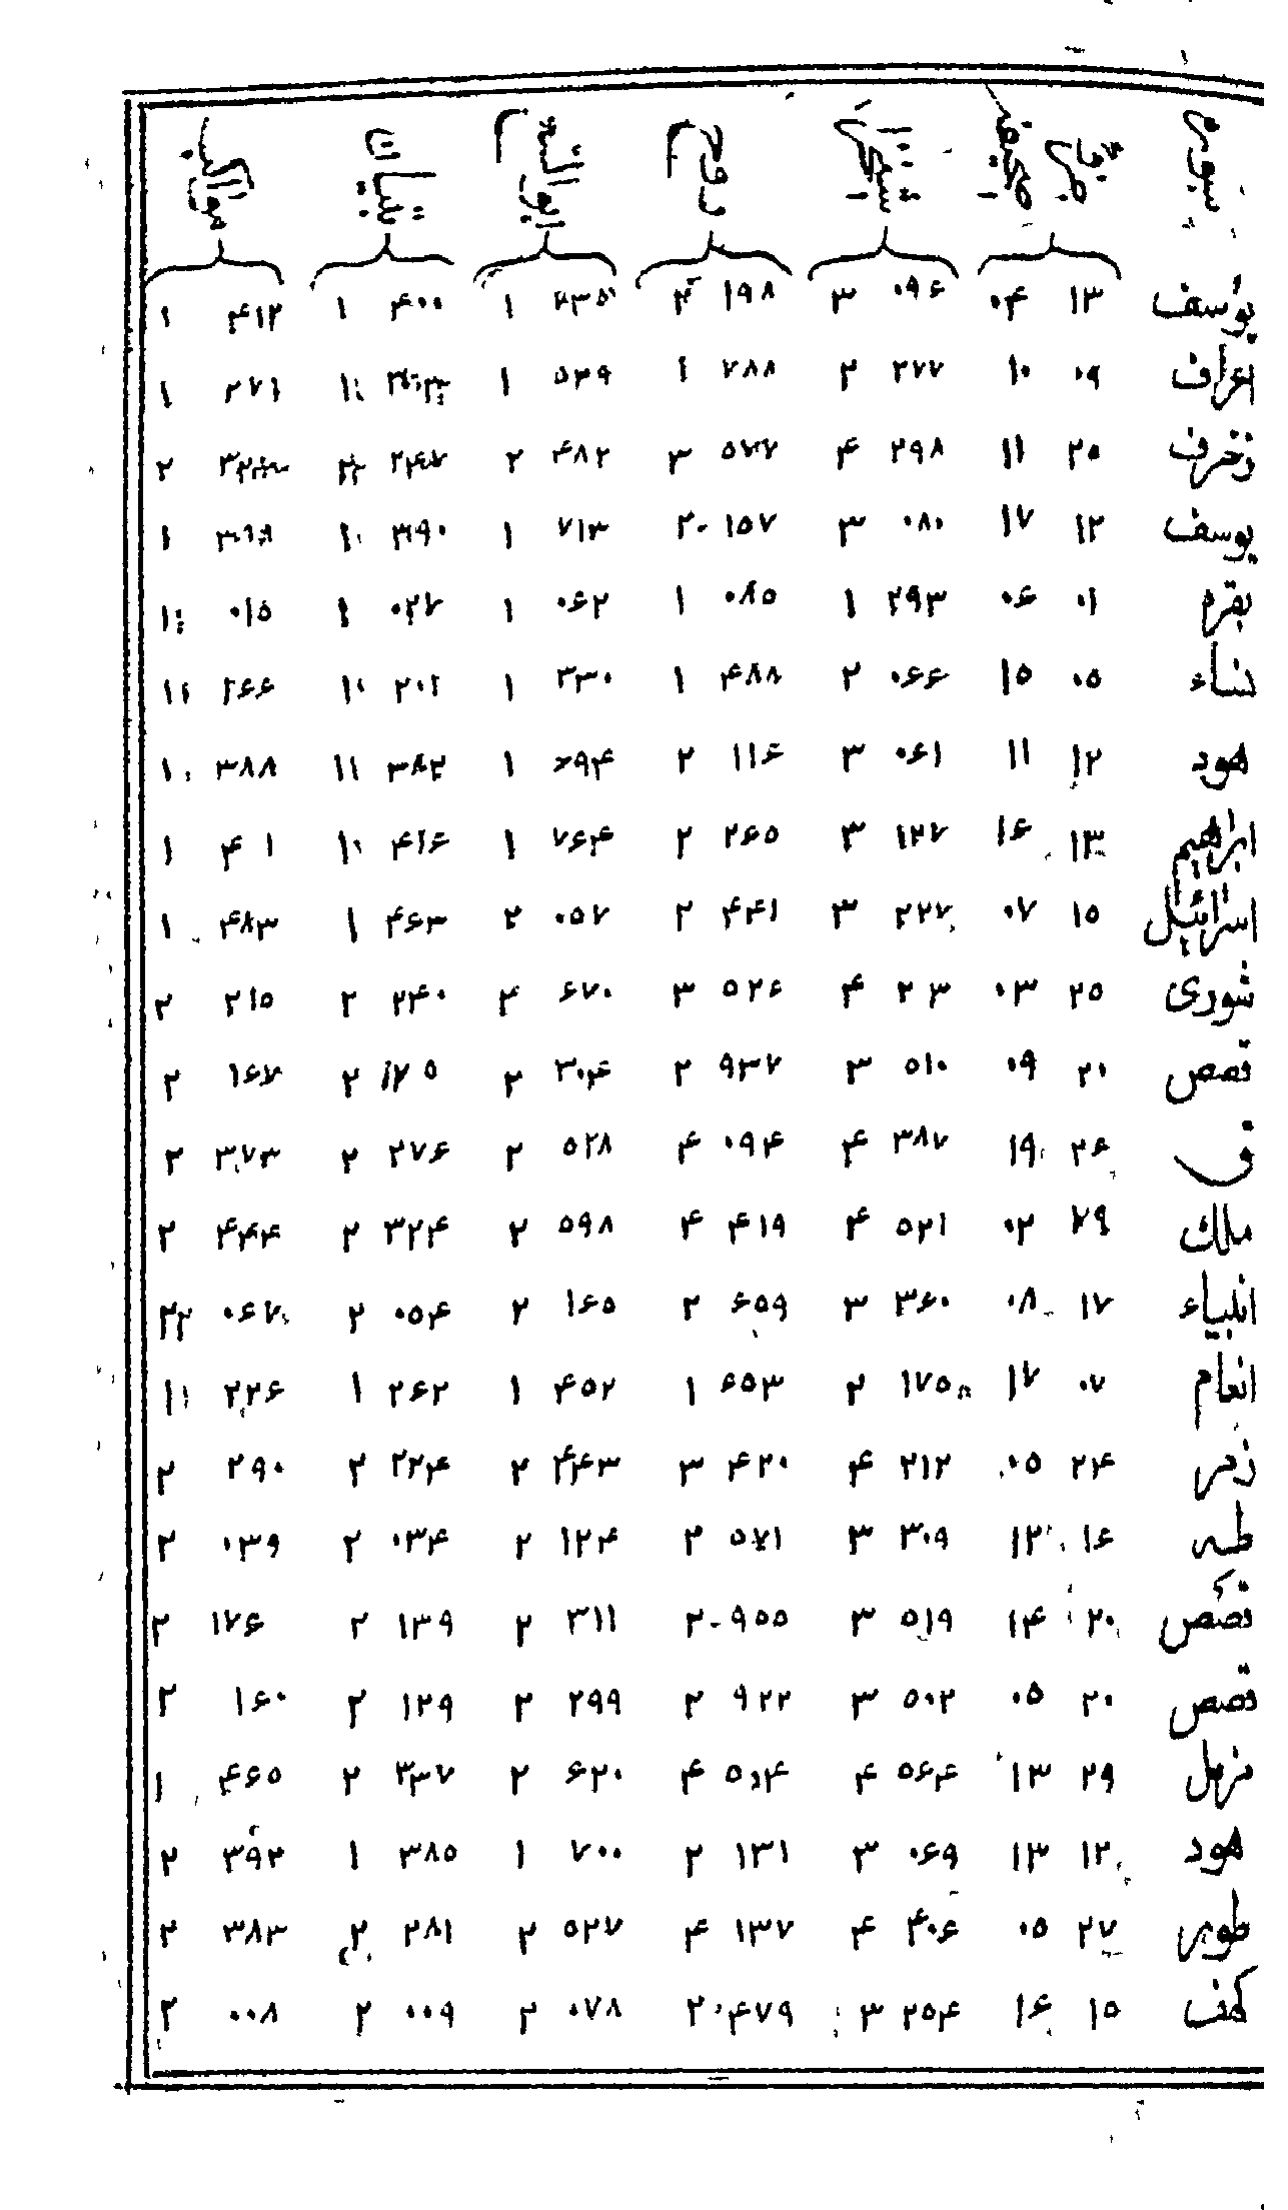 یوسف ۱۳ ۰۴ ۰۹۶ ۳ ۱۹۸ ۲ ۷۳۵ ۱ ۴۰۰ ۱ ۴۱۲ ۱
اعراف ۰۹ ۱۰ ۲۷۷ ۲ ۷۸۸ ۱ ۵۳۹ ۱ ۱ ۲۷۱ ۱
زخرف ۲۵ ۱۱ ۲۹۸ ۴ ۵۷۷ ۳ ۴۸۲ ۲ ۲۴۷ ۲ ۲
یوسف ۱۲ ۱۷ ۰۸۰ ۳ ۱۵۷ ۲ ۷۱۳ ۱ ۳۹۰ ۱ ۳۹۹ ۱
بقره ۰۱ ۰۶ ۲۹۳ ۱ ۰۸۵ ۱ ۰۶۲ ۱ ۰۲۷ ۱ ۰۱۵ ۱
نساء ۰۵ ۱۵ ۰۶۶ ۲ ۴۸۸ ۱ ۳۳۰ ۱ ۲۰۲ ۱ ۲۶۶ ۱
هود ۱۲ ۱۱ ۰۶۱ ۳ ۱۱۶ ۲ ۶۹۴ ۱ ۳۸۲ ۱ ۳۸۸ ۱
ابراهیم ۱۳ ۱۶ ۱۲۷ ۳ ۲۶۵ ۲ ۷۶۴ ۱ ۴۱۶ ۱ ۴۱ ۱
اسرائیل ۱۵ ۰۷ ۲۲۷ ۳ ۴۴۱ ۲ ۰۵۷ ۲ ۴۶۳ ۱ ۴۸۳ ۱
شوری ۲۵ ۰۳ ۲۳ ۴ ۵۲۶ ۳ ۶۷۰ ۲ ۲۴۰ ۲ ۲۱۵ ۲
قصص ۲۰ ۰۹ ۵۱۰ ۳ ۹۳۷ ۲ ۳۰۴ ۲ ۱۲۵ ۲ ۱۶۷ ۲
ق ۲۶ ۱۹ ۳۸۷ ۴ ۰۹۴ ۴ ۵۲۸ ۲ ۲۷۶ ۲ ۳۷۳ ۲
ملک ۲۹ ۰۲ ۵۲۱ ۴ ۴۱۹ ۴ ۵۹۸ ۲ ۳۲۴ ۲ ۴۴۴ ۲
انبیاء ۱۷ ۰۸ ۳۶۰ ۳ ۶۵۹ ۲ ۱۶۵ ۲ ۰۵۴ ۲ ۰۶۷ ۲
انعام ۰۷ ۱۷ ۱۷۵ ۲ ۶۵۳ ۱ ۴۵۲ ۱ ۲۶۲ ۱ ۲۲۶ ۱
زمر ۲۴ ۰۵ ۲۱۲ ۴ ۴۲۰ ۳ ۴۴۳ ۲ ۲۲۴ ۲ ۲۹۰ ۲
طه ۱۶ ۱۲ ۳۰۹ ۳ ۵۷۱ ۲ ۱۲۴ ۲ ۰۳۴ ۲ ۰۳۹ ۲
قصص ۲۰ ۱۴ ۵۱۹ ۳ ۹۵۵ ۲ ۳۱۱ ۲ ۱۳۹ ۲ ۱۷۶ ۲
قصص ۲۰ ۰۵ ۵۰۲ ۳ ۹۲۲ ۲ ۲۹۹ ۲ ۱۲۹ ۲ ۱۶۰ ۲
مزمل ۲۹ ۱۳ ۵۶۴ ۴ ۵۰۴ ۴ ۶۲۰ ۲ ۳۳۷ ۲ ۴۶۵ ۱
هود ۱۲ ۱۳ ۰۶۹ ۳ ۱۳۱ ۲ ۷۰۰ ۱ ۳۸۵ ۱ ۳۹۲ ۲
طور ۲۷ ۰۵ ۴۰۶ ۴ ۱۳۷ ۴ ۵۲۷ ۲ ۲۸۱ ۲ ۳۸۳ ۲
کهف ۱۵ ۱۶ ۲۵۴ ۳ ۴۷۹ ۲ ۰۷۸ ۲ ۰۰۹ ۲ ۰۰۸ ۲